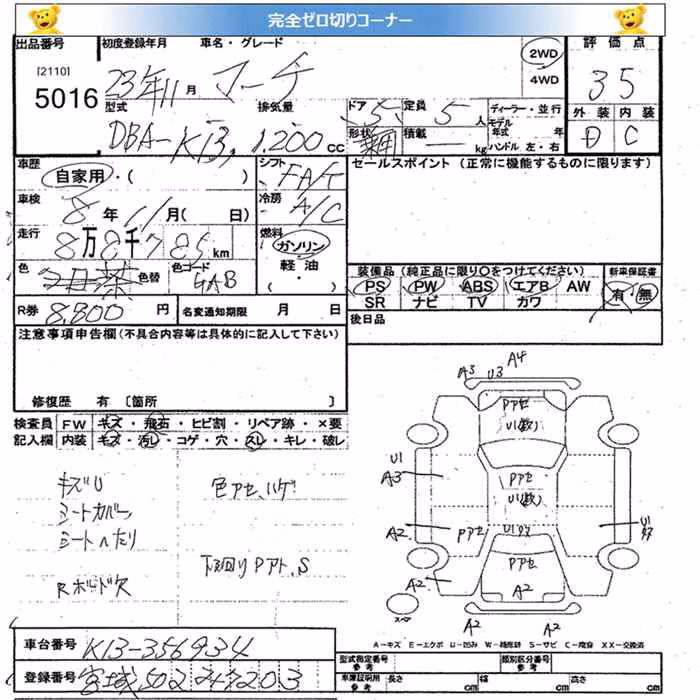 完全ゼロ切りコーナー
出品番号 初度登録年月 車名・グレード 2WD 評価点
[2110] 23年11月 マーチ 4WD 3.5
5016
型式 排気量 ドア 5 定員 5人 ディーラー・並行 外装 内装
DBA-K13, 1,200cc 形状 積載 kg モデル年式 年式 ハンドル 左・右 D C
車歴 シフト セールスポイント (正常に機能するものに限ります)
自家用・( ) FA/T
車検 冷房
8年 11月( 日) A/C
走行 燃料
8万8千785km ガソリン
色 色替 色コード GAB 軽油・
装備品(純正品に限り○をつけてください) 新車保証書
PS PW ABS エアB AW 有・無
SR ナビ TV カワ
R券 8,800円 名変通知期限 月 日 後日品
注意事項申告欄(不具合内容等は具体的に記入して下さい)
修復歴 有 〔箇所 〕
検査員 FW キズ・飛石・ヒビ割・リペア跡・×要
記入欄 内装 キズ・汚レ・コゲ・穴・スレ・キレ・破レ
キズU 色アセ、ハゲ
シートカバー
シートヘタリ
下回りPアト、S
Rボルト欠
A3 U3 A4
Pアセ
U1(数)
U1
A3
Pアセ
U1(数)
A2 Pアセ U1 U1
Pアセ
A2 A2
スペア
A2 A2
A-キズ E-エクボ U-凹み W-補修跡 S-サビ C-腐食 XX-交換済
車台番号 K13-356934
登録番号 宮城502
型式指定番号 参考 類別区分番号 参考
車庫証明用 参考 長さ cm 幅 cm 高さ cm